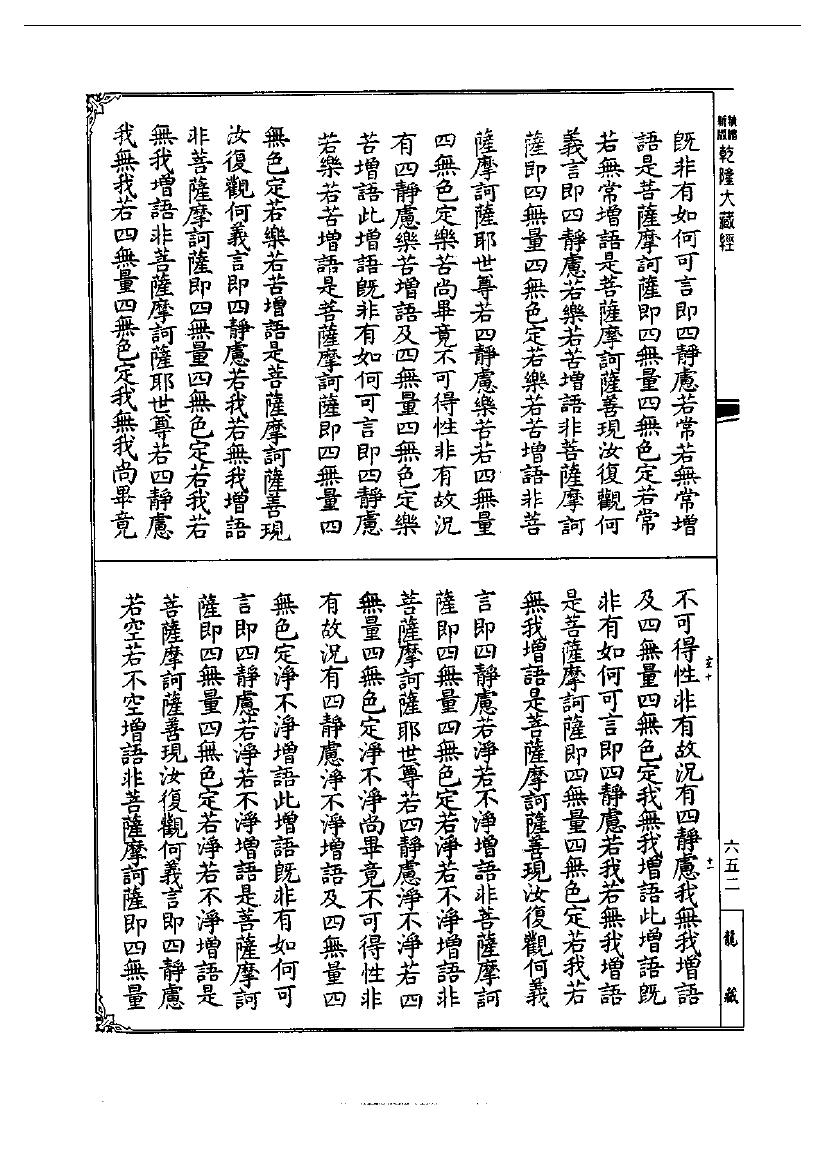 新編縮版
乾隆大藏經
既非有如何可言即四靜慮若常若無常增
語是菩薩摩訶薩即四無量四無色定若常
若無常增語是菩薩摩訶薩善現汝復觀何
義言即四靜慮若樂若苦增語非菩薩摩訶
薩即四無量四無色定若樂若苦增語非菩
薩摩訶薩耶世尊若四靜慮樂苦若四無量
四無色定樂苦尚畢竟不可得性非有故況
有四靜慮樂苦增語及四無量四無色定樂
苦增語此增語既非有如何可言即四靜慮
若樂若苦增語是菩薩摩訶薩即四無量四
無色定若樂若苦增語是菩薩摩訶薩善現
汝復觀何義言即四靜慮若我若無我增語
非菩薩摩訶薩即四無量四無色定若我若
無我增語非菩薩摩訶薩耶世尊若四靜慮
我無我若四無量四無色定我無我尚畢竟
不可得性非有故況有四靜慮我無我增語
及四無量四無色定我無我增語此增語既
非有如何可言即四靜慮若我若無我增語
是菩薩摩訶薩即四無量四無色定若我若
無我增語是菩薩摩訶薩善現汝復觀何義
言即四靜慮若淨若不淨增語非菩薩摩訶
薩即四無量四無色定若淨若不淨增語非
菩薩摩訶薩耶世尊若四靜慮淨不淨若四
無量四無色定淨不淨尚畢竟不可得性非
有故況有四靜慮淨不淨增語及四無量四
無色定淨不淨增語此增語既非有如何可
言即四靜慮若淨若不淨增語是菩薩摩訶
薩即四無量四無色定若淨若不淨增語是
菩薩摩訶薩善現汝復觀何義言即四靜慮
若空若不空增語非菩薩摩訶薩即四無量
十二
六五二
龍藏